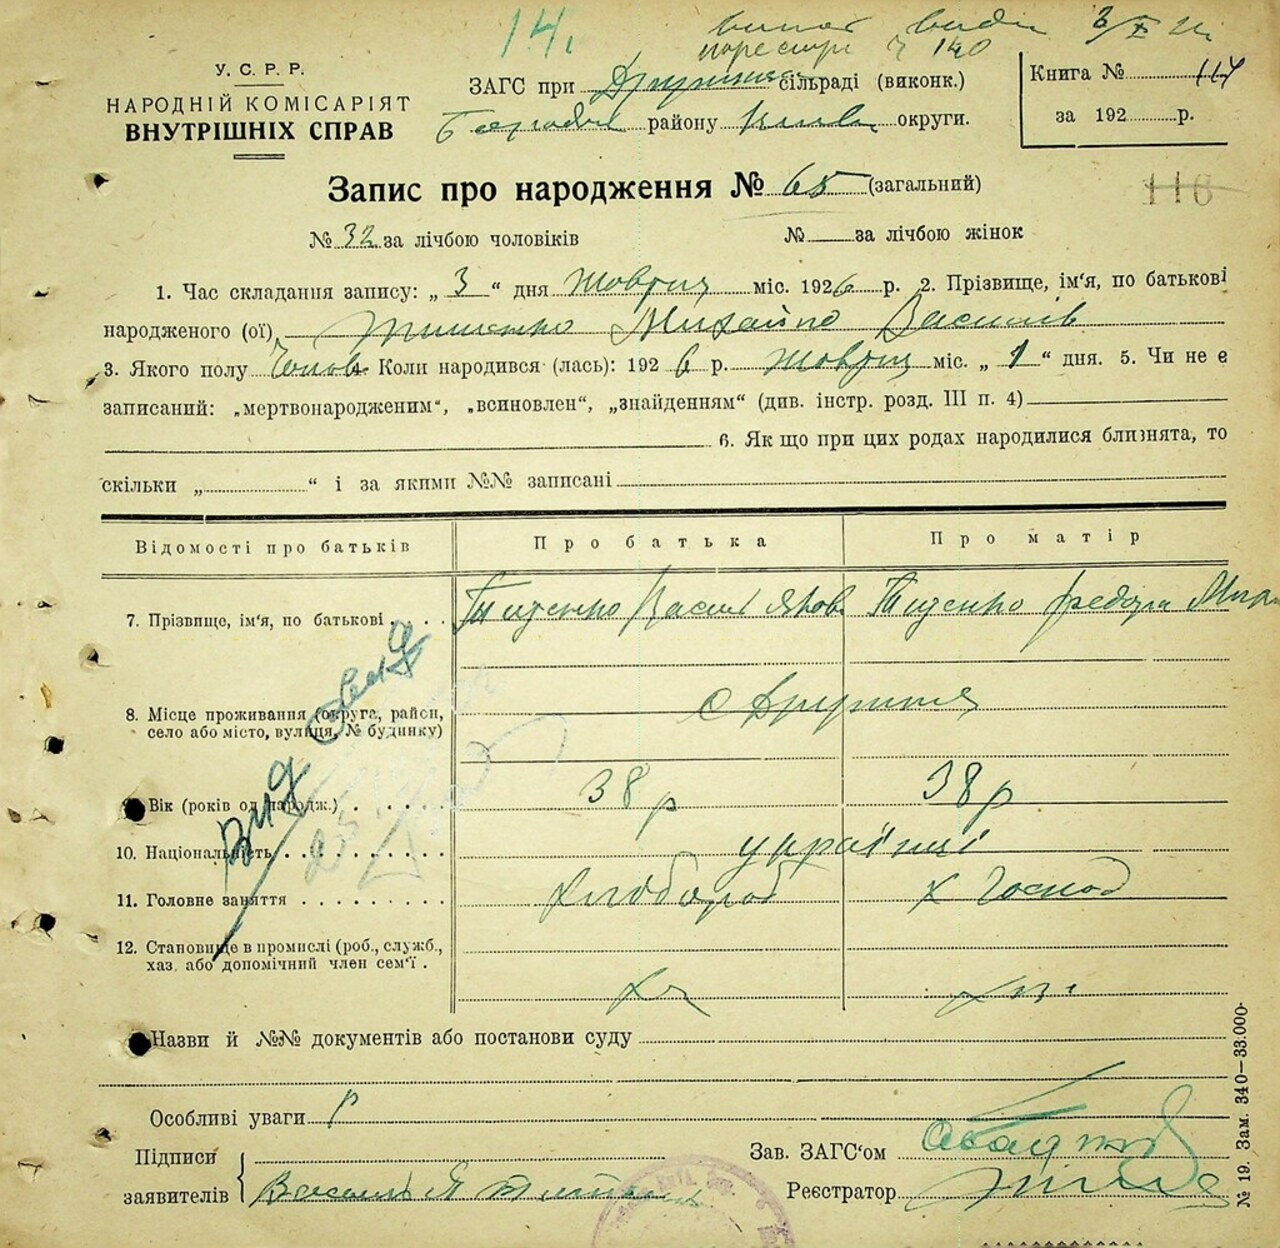 14.
3/X 26.
№ 140
У. С. Р. Р.
НАРОДНІЙ КОМІСАРІЯТ
ВНУТРІШНІХ СПРАВ
ЗАГС при сільраді (виконк.)
району округи.
Книга № 117
за 192 р.
Запис про народження № 65 (загальний)
116
№ 32 за лічбою чоловіків № за лічбою жінок
1. Час складання запису: „ 3 “ дня Жовтня міс. 1926 р. 2. Прізвище, ім‘я, по батькові
народженого (ої) Тищенко Михайло Василів
3. Якого полу Чолов. Коли народився (лась): 192 6 р. Жовтня міс. „ 1 “ дня. 5. Чи не є
записаний: „мертвонародженим“, „всиновлен“, „знайденням“ (див. інстр. розд. III п. 4)
6. Як що при цих родах народилися близнята, то
скільки „ “ і за якими №№ записані
Відомості про батьків Про батька Про матір
7. Прізвище, ім‘я, по батькові . . . . Тищенко Василь Яков Тищенко
8. Місце проживання (округа, район,
село або місто, вулиця, № будинку)
9. Вік (років од народж.) . . . . . 38 р 38 р
10. Національність . . . . . . . . . . українці
11. Головне заняття . . . . . . . . . Хлібороб х Господ
12. Становище в промислі (роб., служб.,
хаз. або допомічний член сем‘ї .
Назви й №№ документів або постанови суду
Особливі уваги
Підписи
заявителів Василь Я Тищенко
Зав. ЗАГС‘ом
Реєстратор
№ 19. Зам. 340—33.000